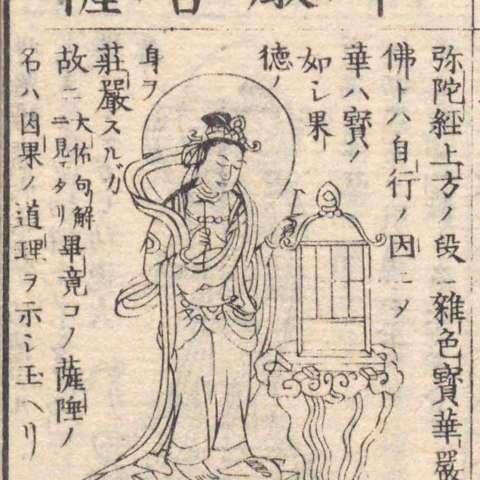 弥陀經上方ノ段ニ雜色寶華嚴
佛トハ自行ノ因ニメ
華ハ寶ノ
如シ果
徳ノ
身ヲ
莊嚴スルガ
故ニ大佑句解
ニ見タリ畢竟コノ薩埵ノ
名ハ因果ノ道理ヲ示シ玉ヘリ